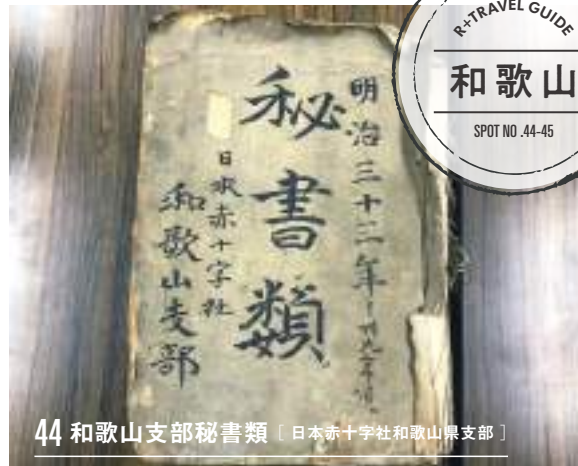 R+TRAVEL GUIDE
和歌山
SPOT NO .44-45
明治三十二年
秘書類
日本赤十字社
和歌山支部
44 和歌山支部秘書類［日本赤十字社和歌山県支部］